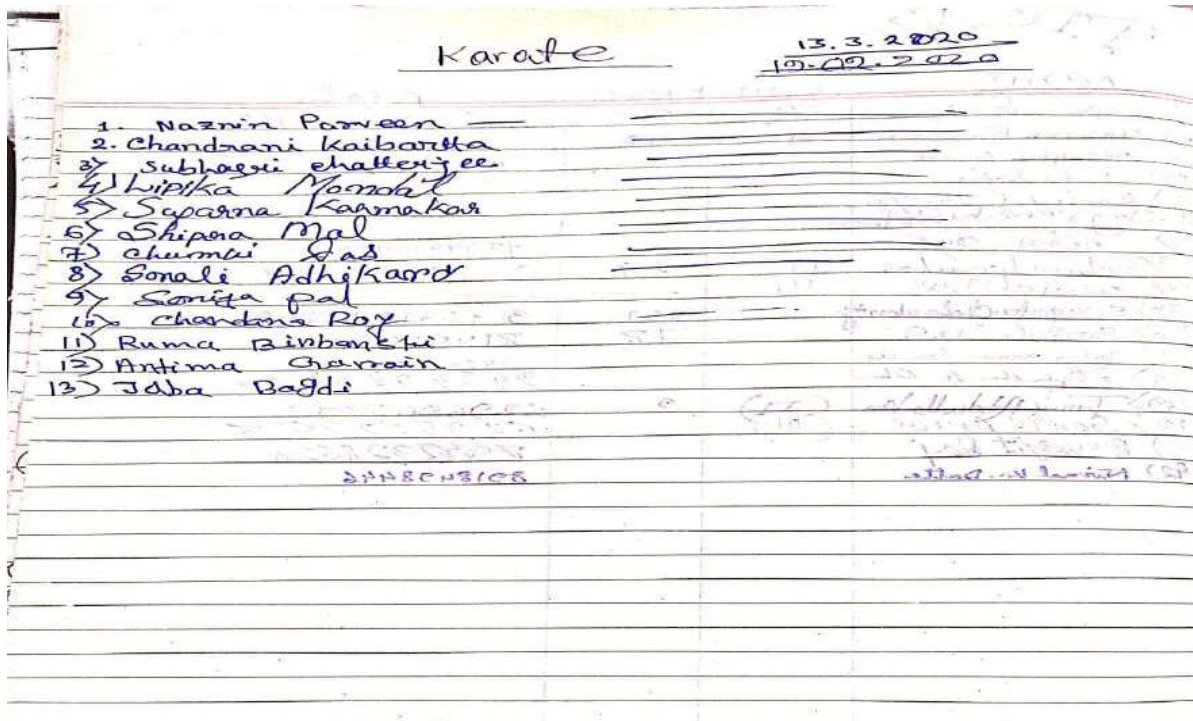 Karate
13.3.2020
12.02.2020
1. Naznin Parveen
2. Chandrani Kaibartta
3) Subhasri Chatterjee
4) Lipika Mondal
5) Saparna Kaamakar
6) Shipra Mal
7) Chumki Das
8) Sonali Adhikary
9) Sonita Pal
10) Chandana Roy
11) Ruma Birbanshi
12) Antima
13) Joba Bagdi